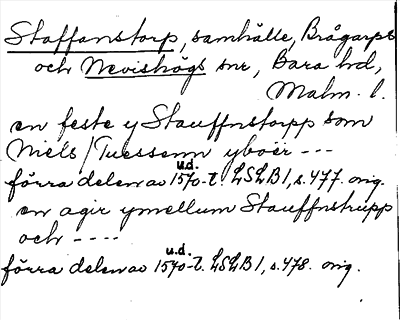 Staffanstorp, samhälle, Brågarps
och Nevishögs snr, Bara hd,
Malm. l.
en feste y Stauffnstorpp som
Niels / Tuessenn yboer ---
u.d.
förra delen av 1570-t. LSLB1, s. 477. orig.
en agir ymellum Stauffnstrupp
och ----
u.d.
förra delen av 1570-t. LSLB1, s. 478. orig.